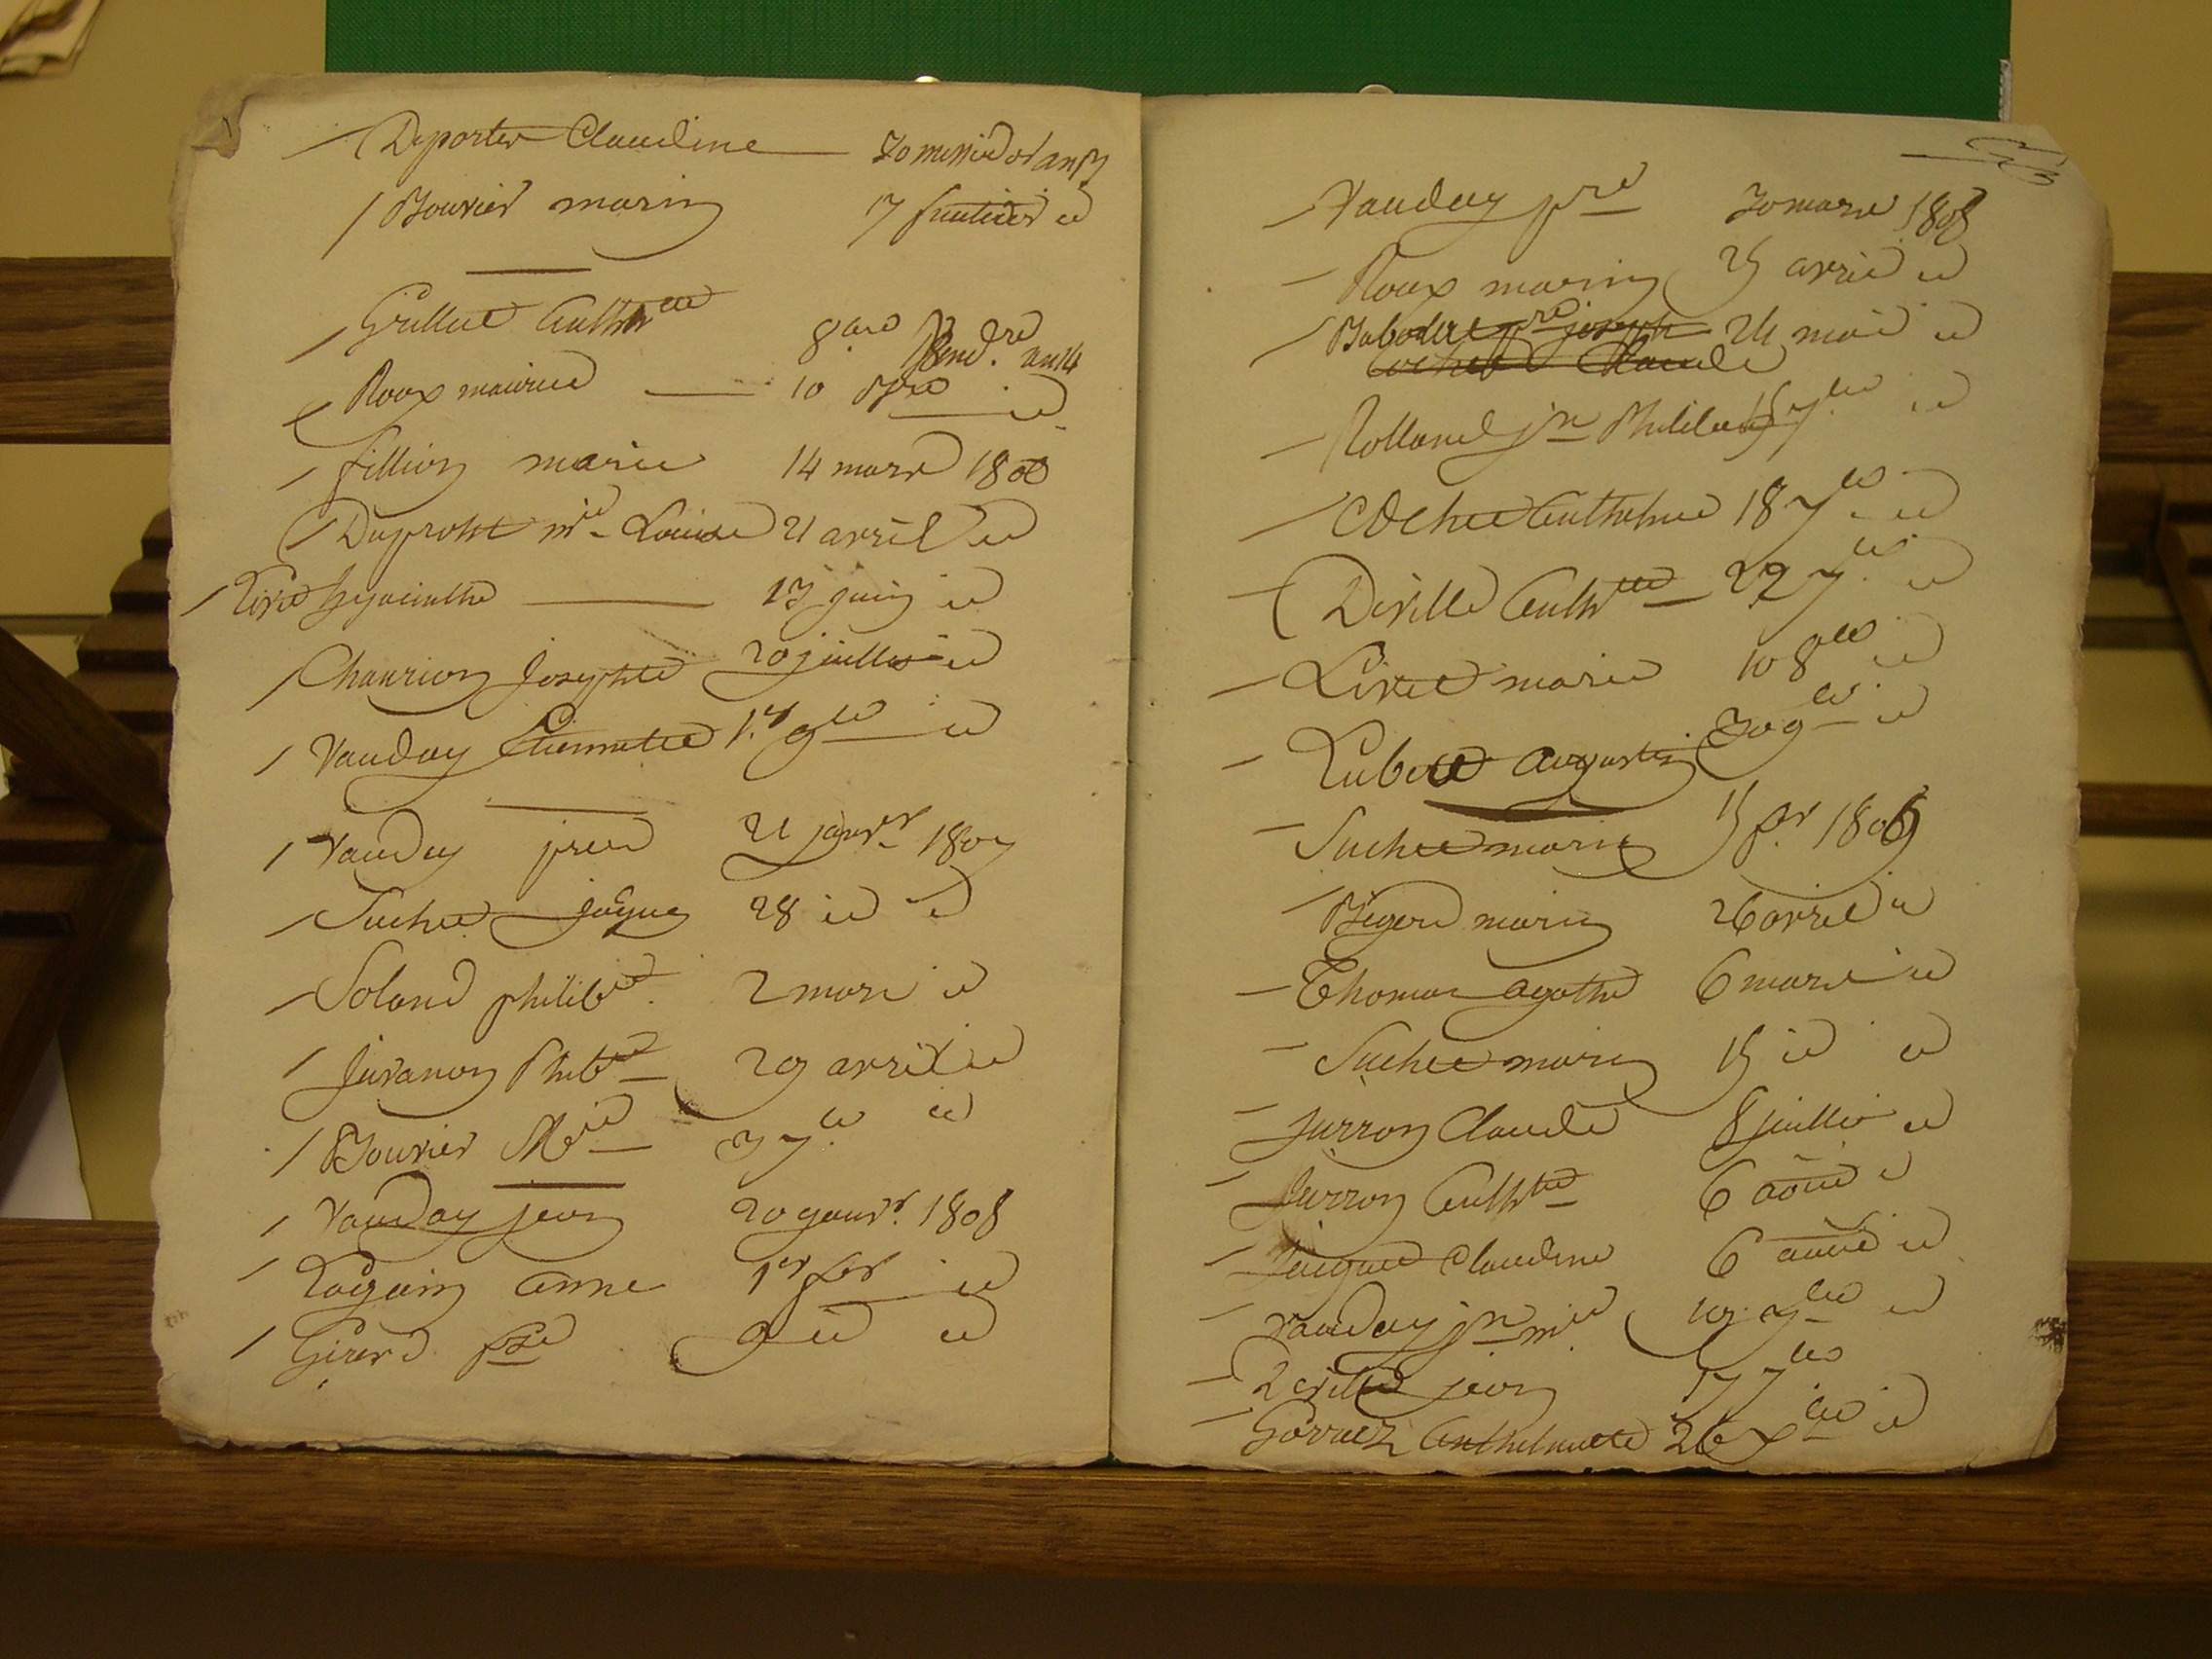 Deporter Claudine 30 messidor an 13
Bouvier marin 17 fructidor id
Grillet Anth.ette 8 Vend.re an 14
Roux maurice 10 id
fillion marie 14 mars 1806
Duprost m.ie Louise 21 avril id
Livet hyacinthe 13 juin id
Chanrion Josephte 20 juillet id
Vauday Etiennette 1.er 9bre id
Vauday pierre 21 janv.er 1807
Suchet jaques 28 id id
Soland philib.te 2 mars id
Juvanon Philib.te 29 avril id
Bouvier M.rie 3 7bre id
Vauday jean 20 janv.r 1808
Laguin anne 1er fer id
Girerd fse 9 id id
Vauday pre 30 mars 1808
Roux marin 25 avril id
joseph 24 mai id
Cochet Claude
Rolland jn Philibert 15 7bre id
Cochet Anthelme 18 7bre id
Deville Anth.ette 22 7bre id
Livet marie 10 8bre id
Lubert Augustin 30 9bre id
Suchet marin 15 fer 1809
Bigerd marin 26 avril id
Thomas agathe 6 mars id
Suchet marin 15 id id
Jurron Claude 8 juillet id
Jurron Anth.tte 6 aout id
Jaiquet Claudine 6 aout id
Vauday jn mie 10 7bre id
Deville jean 17 7bre
Gorraz Anthelmette 26 xbre id